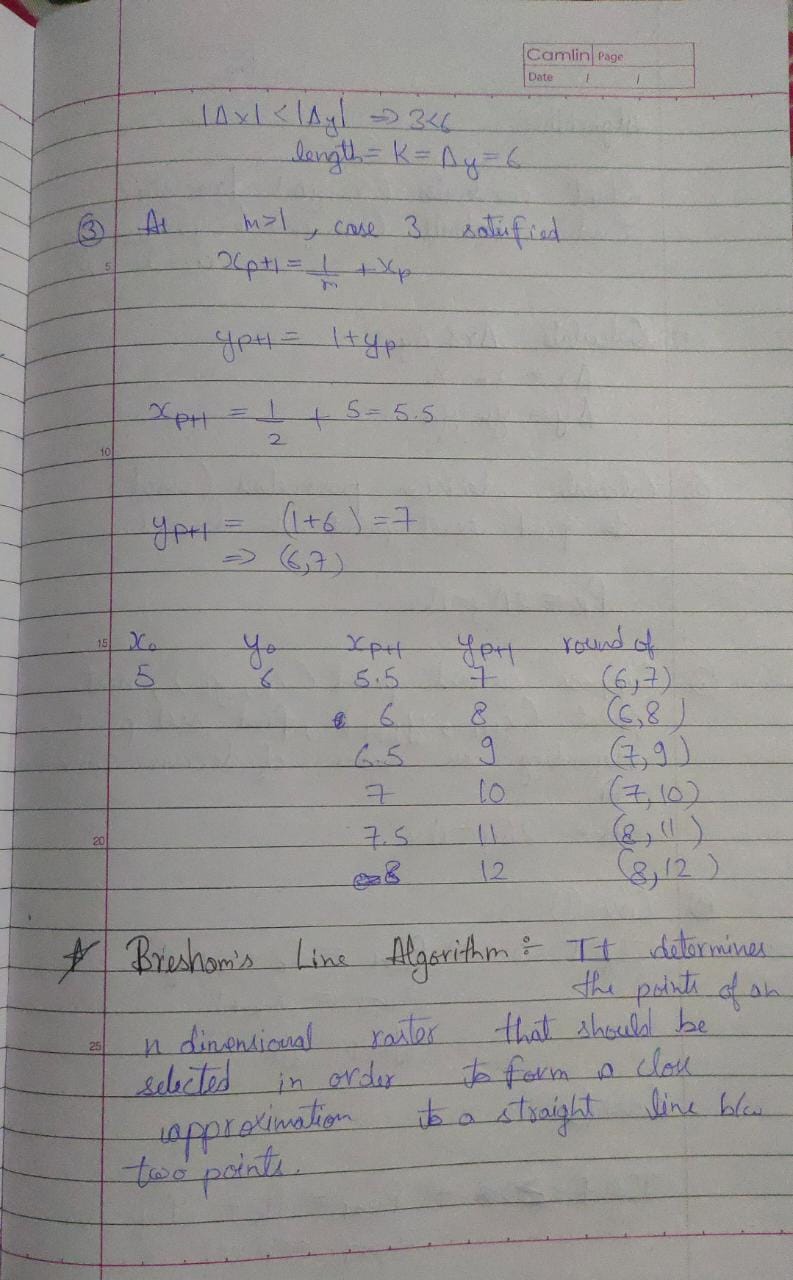 Camlin Page
Date / /
|Δx| < |Δy| => 3<6
length = K = Δy = 6
③ As m>1, case 3 satisfied
5
xp+1 = 1/m + xp
yp+1 = 1+yp
xp+1 = 1/2 + 5 = 5.5
10
yp+1 = (1+6) = 7
=> (6,7)
15 x₀ y₀ xp+1 yp+1 round of
5 6 5.5 7 (6,7)
6 8 (6,8)
6.5 9 (7,9)
7 10 (7,10)
20 7.5 11 (8,11)
8 12 (8,12)
Breshom's Line Algorithm :- It determines
the points of an
25 n dimensional raster that should be
selected in order to form a close
approximation to a straight line b/w
two points.